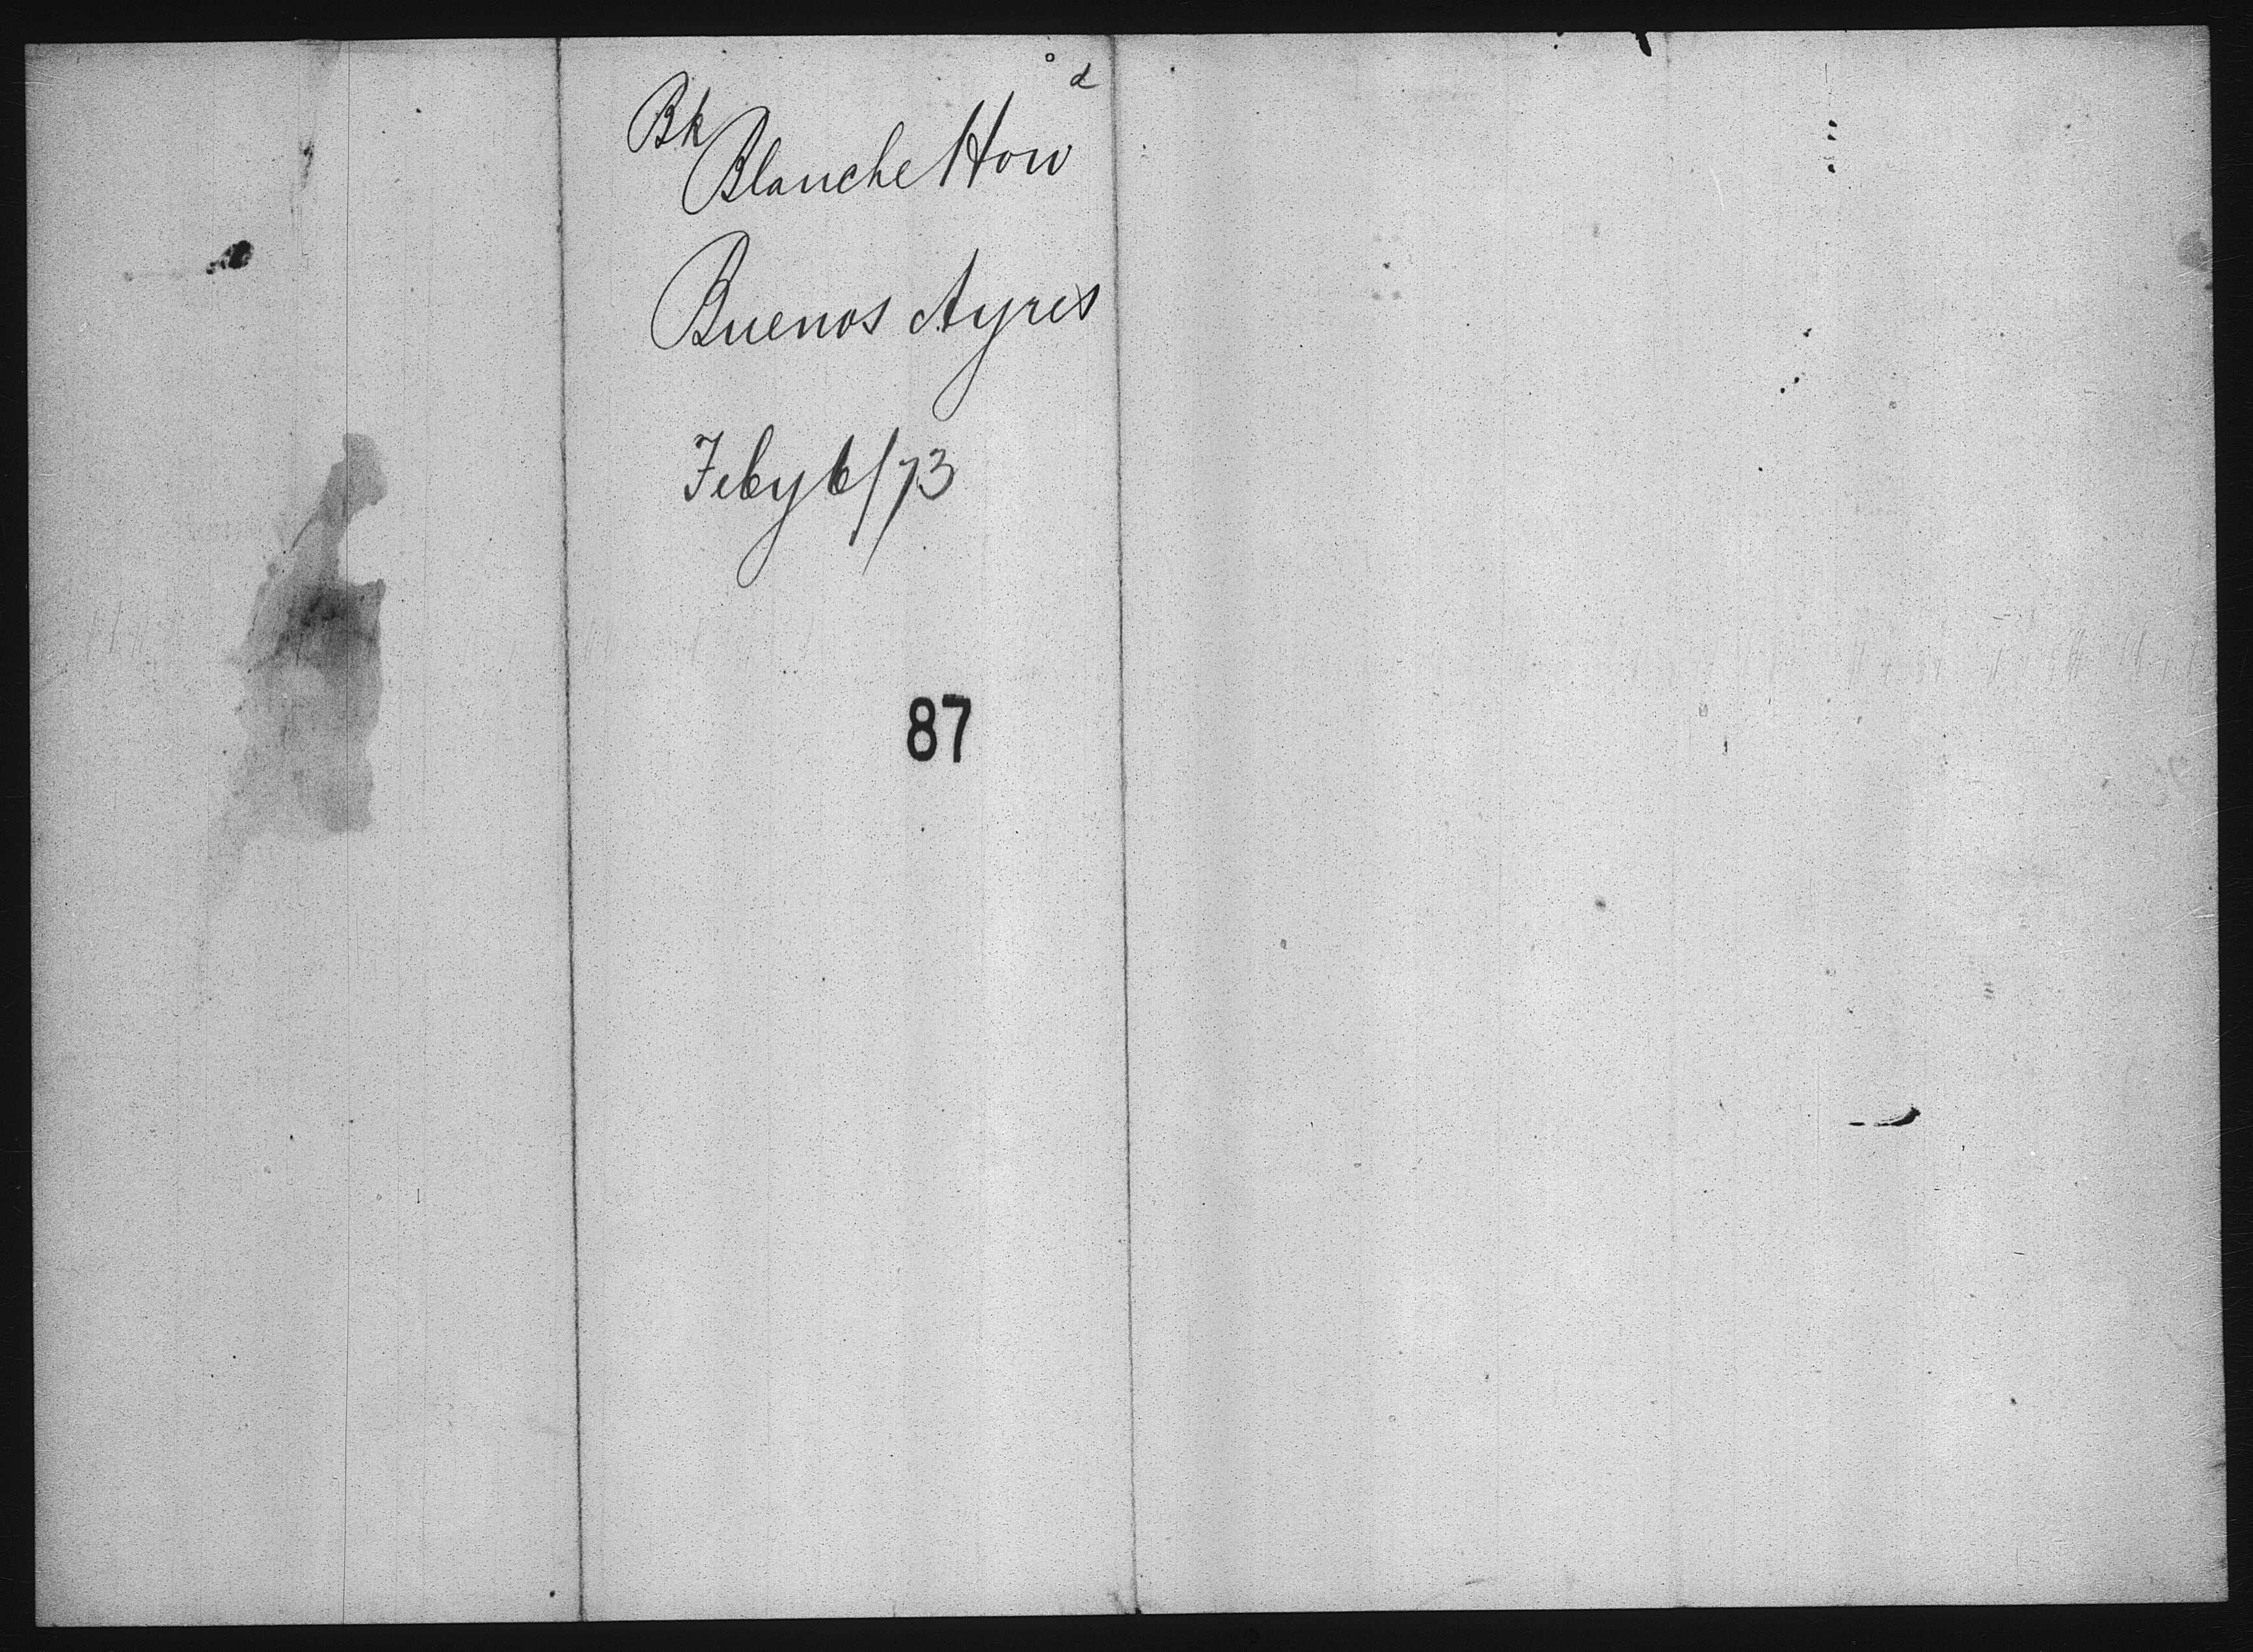 Bk
Blanche How^d
Buenos Ayres
Feby 6/73
87